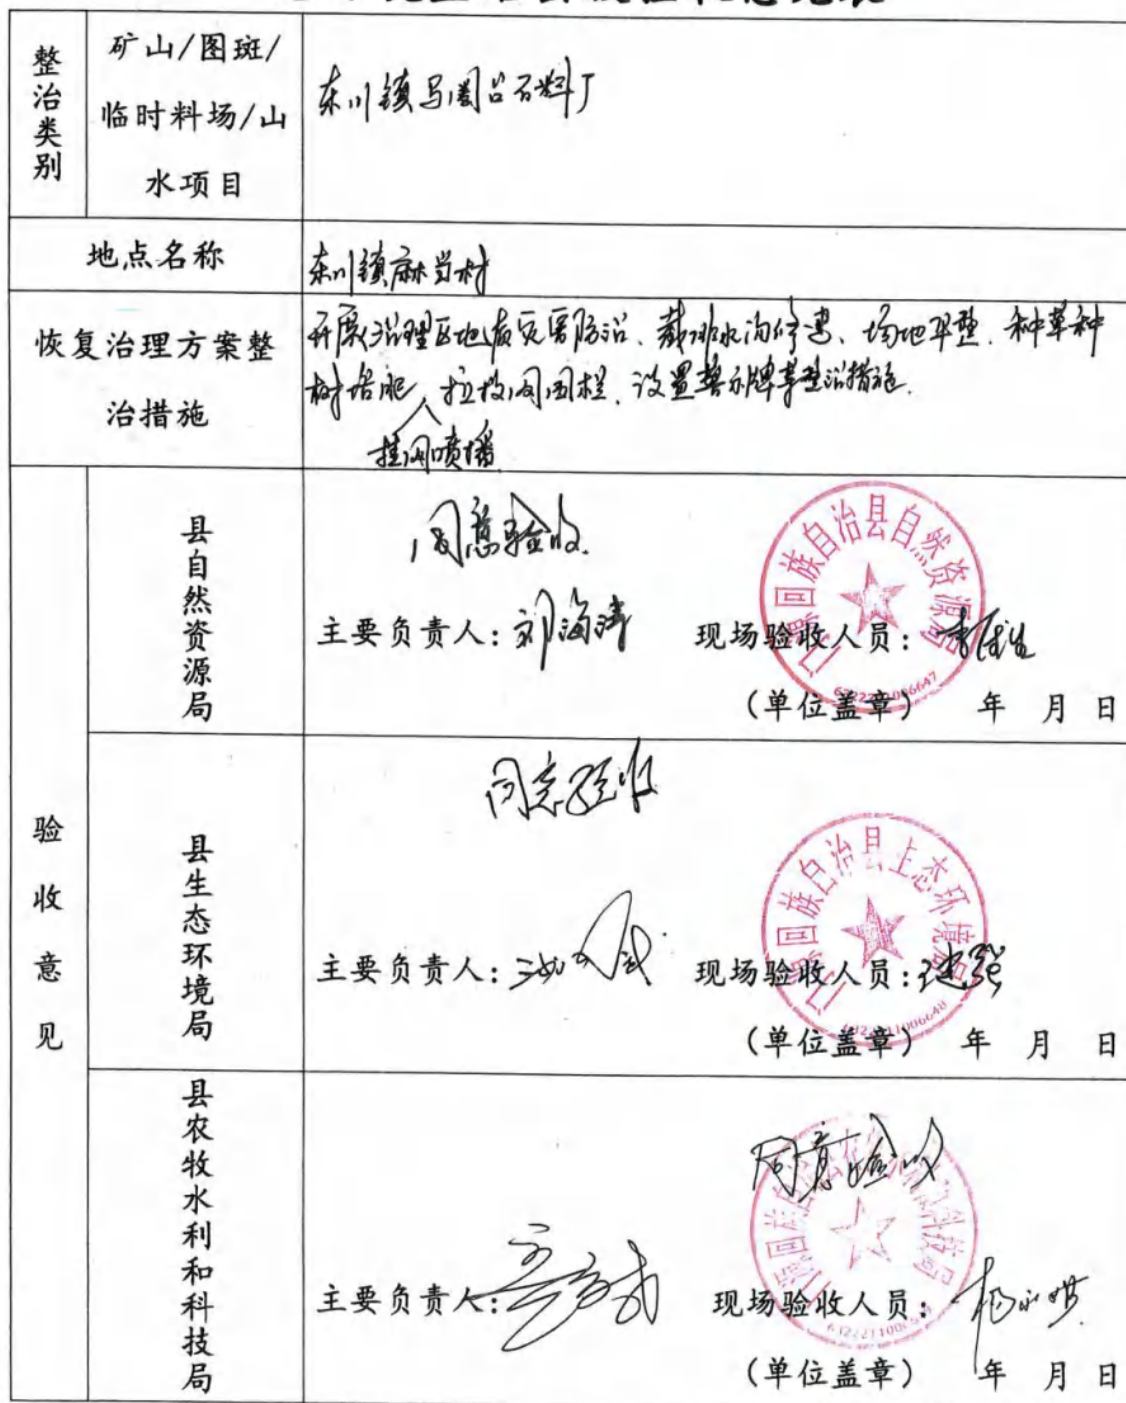 整治类别
矿山/图斑/
临时料场/山
水项目
东川镇马圈岔石料厂
地点名称
东川镇麻当村
恢复治理方案整
治措施
开展治理区地质灾害防治、截排水沟修建、场地平整、种草种
树培肥、拉拨网围栏、设置警示牌等整治措施.
挂网喷播
验收意见
县自然资源局
同意验收.
主要负责人:刘海涛
现场验收人员:
(单位盖章) 年 月 日
门源回族自治县自然资源局
6322211006647
县生态环境局
同意验收
主要负责人:
现场验收人员:
(单位盖章) 年 月 日
门源回族自治县生态环境局
6322211006648
县农牧水利和科技局
同意验收
主要负责人:
现场验收人员:
(单位盖章) 年 月 日